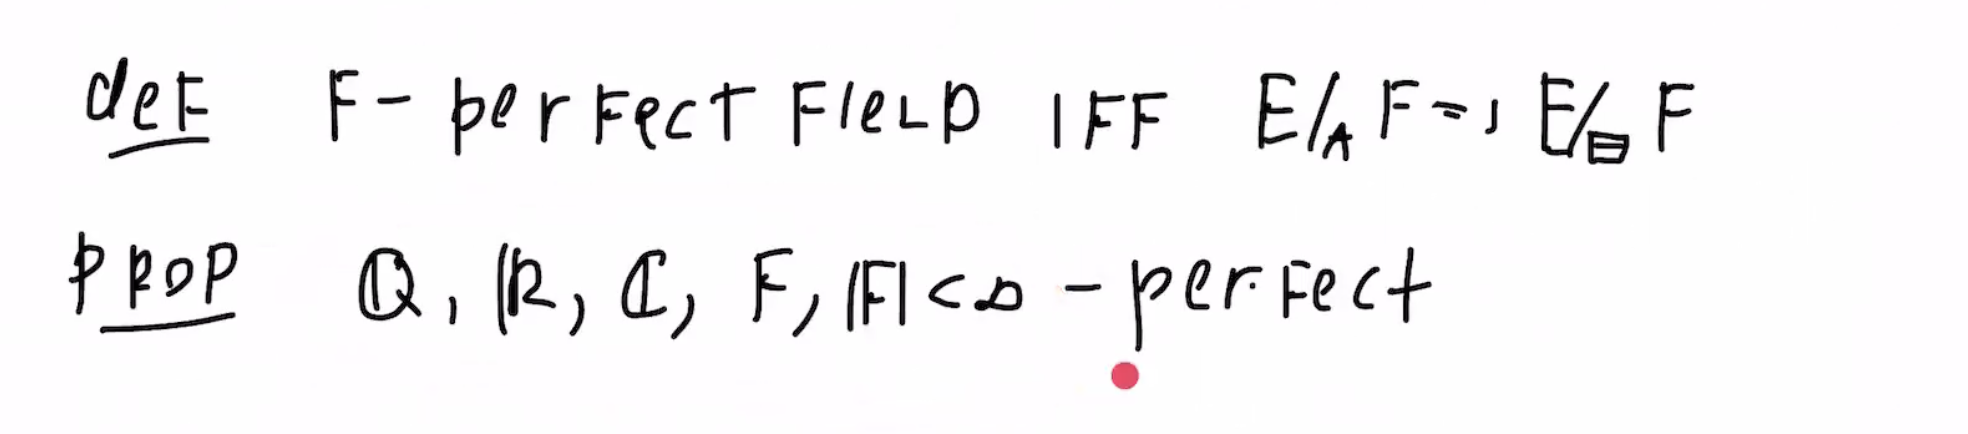 def F - perfect field iff E/_A F => E/_⊟ F
Prop ℚ, ℝ, ℂ, F, |F| < ∞ - perfect